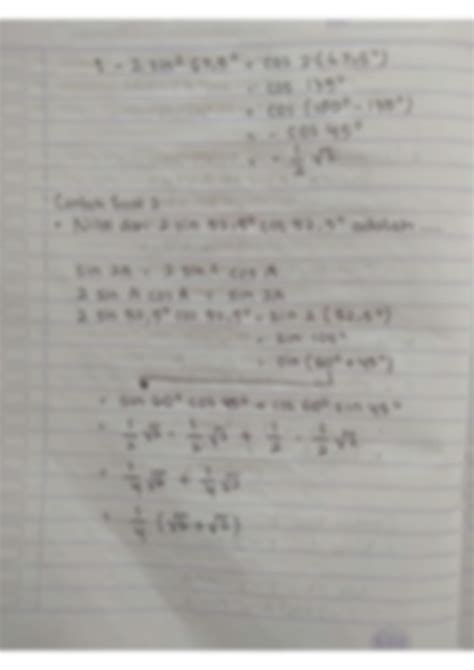 1 - 2 sin² 67,5° = cos 2 (67,5°)
= cos 135°
= cos (180° - 135°)
= - cos 45°
= - 1/2 √2
Contoh Soal 2
• Nilai dari 2 sin 52,5° cos 52,5° adalah ....
sin 2A = 2 sin A cos A
2 sin A cos A = sin 2A
2 sin 52,5° cos 52,5° = sin 2 (52,5°)
= sin 105°
= sin (60° + 45°)
= sin 60° cos 45° + cos 60° sin 45°
= 1/2 √3 - 1/2 √2 + 1/2 - 1/2 √2
= 1/4 √6 + 1/4 √2
= 1/4 (√6 + √2)